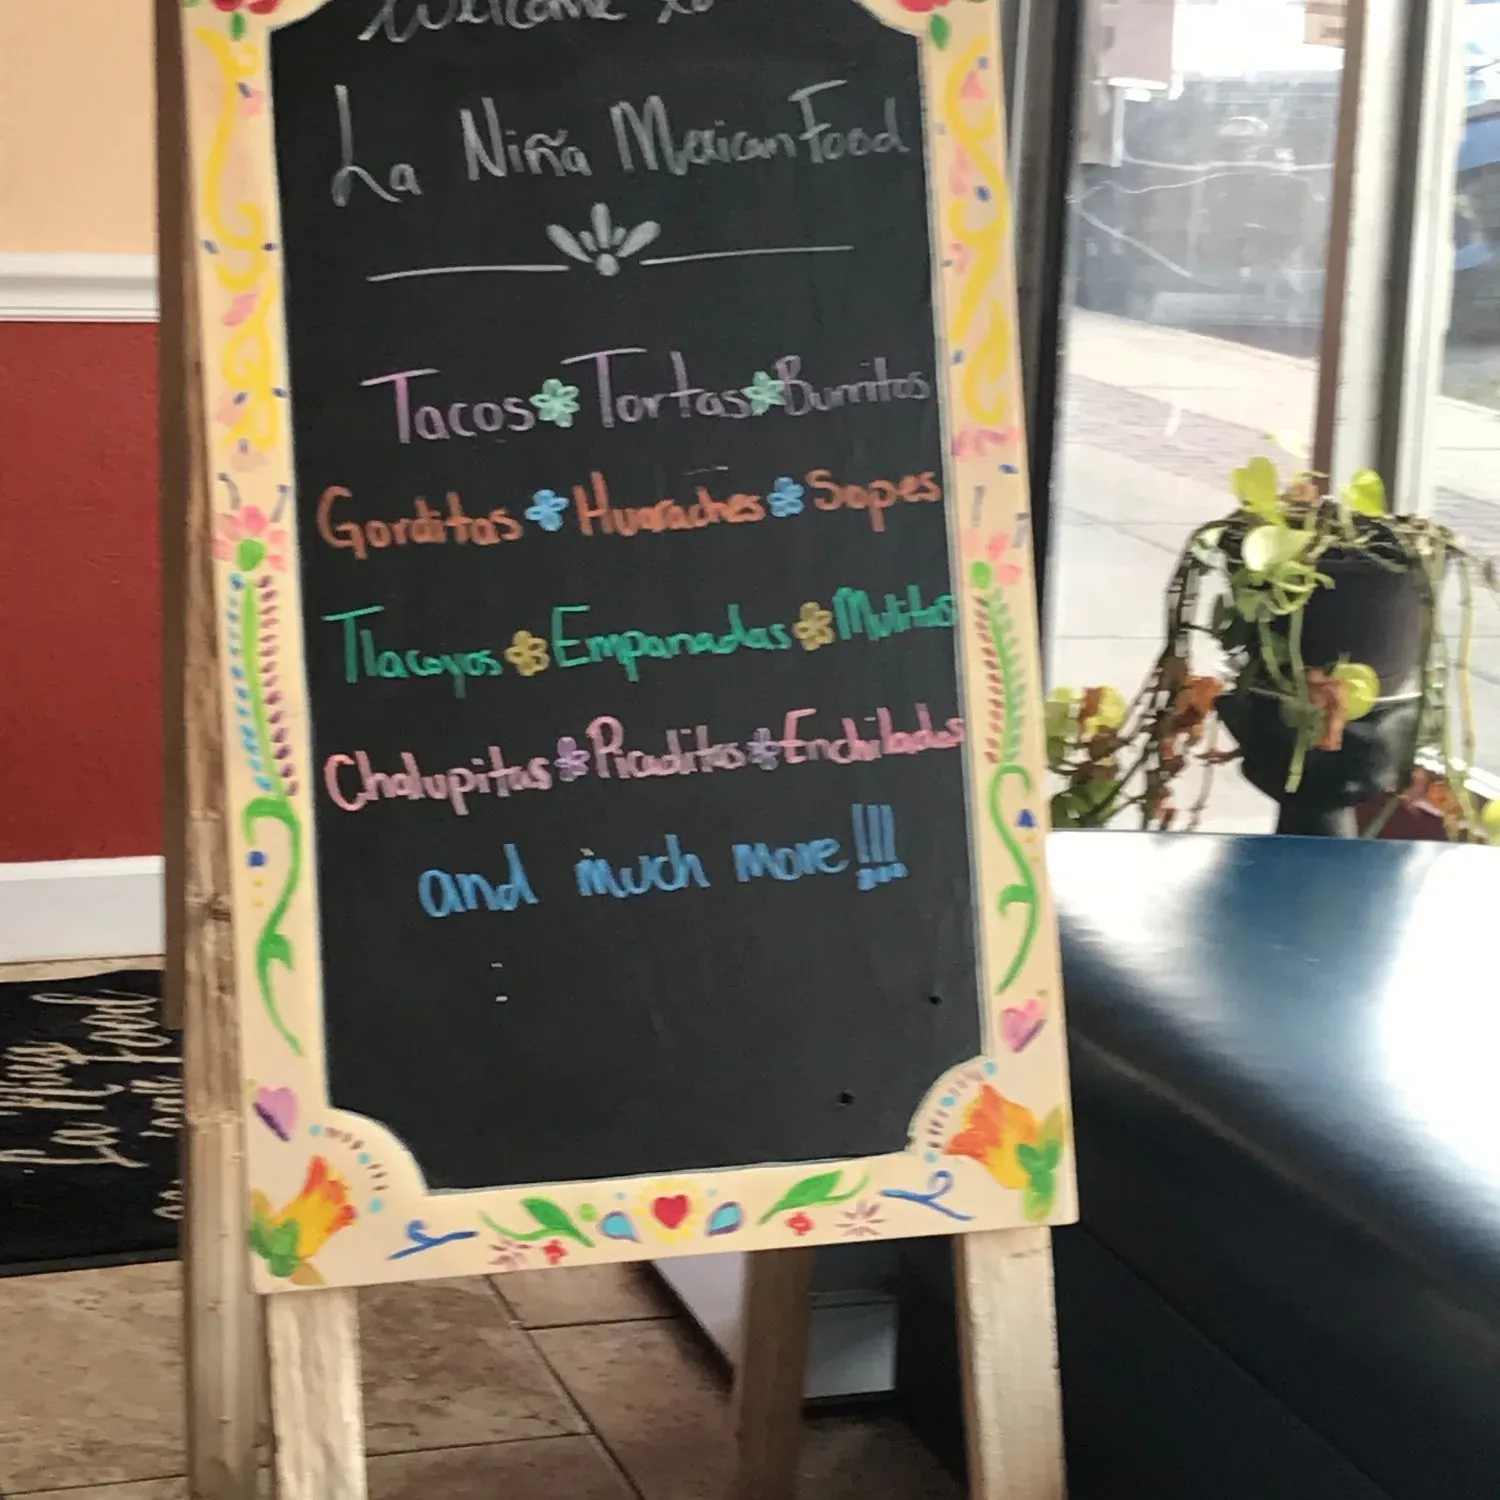 Welcome to
La Niña Mexican Food
Tacos Tortas Burritos
Gorditas Huaraches Sopes
Tlacoyos Empanadas Mulitas
Chalupitas Picaditas Enchiladas
and much more!!!
La Niña
Food